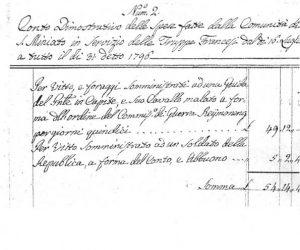 Num. 2
Conto Dimostrativo delle Spese fatte dalla Comunità di
S. Miniato in Servizio delle Truppe Francesi dal dì 10. Luglio
a tutto il dì 31. detto 1796.
Per Vitto, e foraggi somministrati ad una Guida
del Gñle in Capite, e suo Cavallo malato a for-
ma dell'ordine del Commiss. di Guerra
per giorni quindici £ 49.12.
Per Vitto Somministrato ad un Soldato della
Repubblica, a forma del Conto, e Abbuono £ 5.2.4
Somma £ 54.14.4